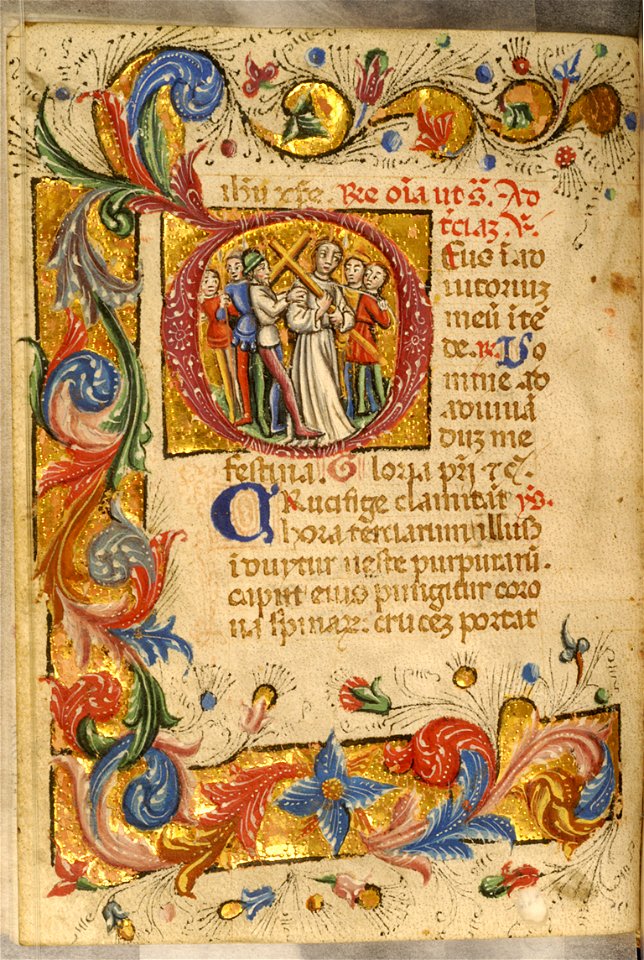 ihũ xp̃e. Rẽe oĩa ut s̃. Ad
t̃ciaz ỹ.
Eus ĩ ad
iutoriuz
meũ ĩtẽ
de. R. Do
mine ad
adiuuā
duz me
festina. Gloria pr̃i ⁊ c̃.
CRucifige clamitāt
hora terciarum illus
i duytur ueste purpurarũ.
caput eius pungitur coro
na spinaz: crucez portat